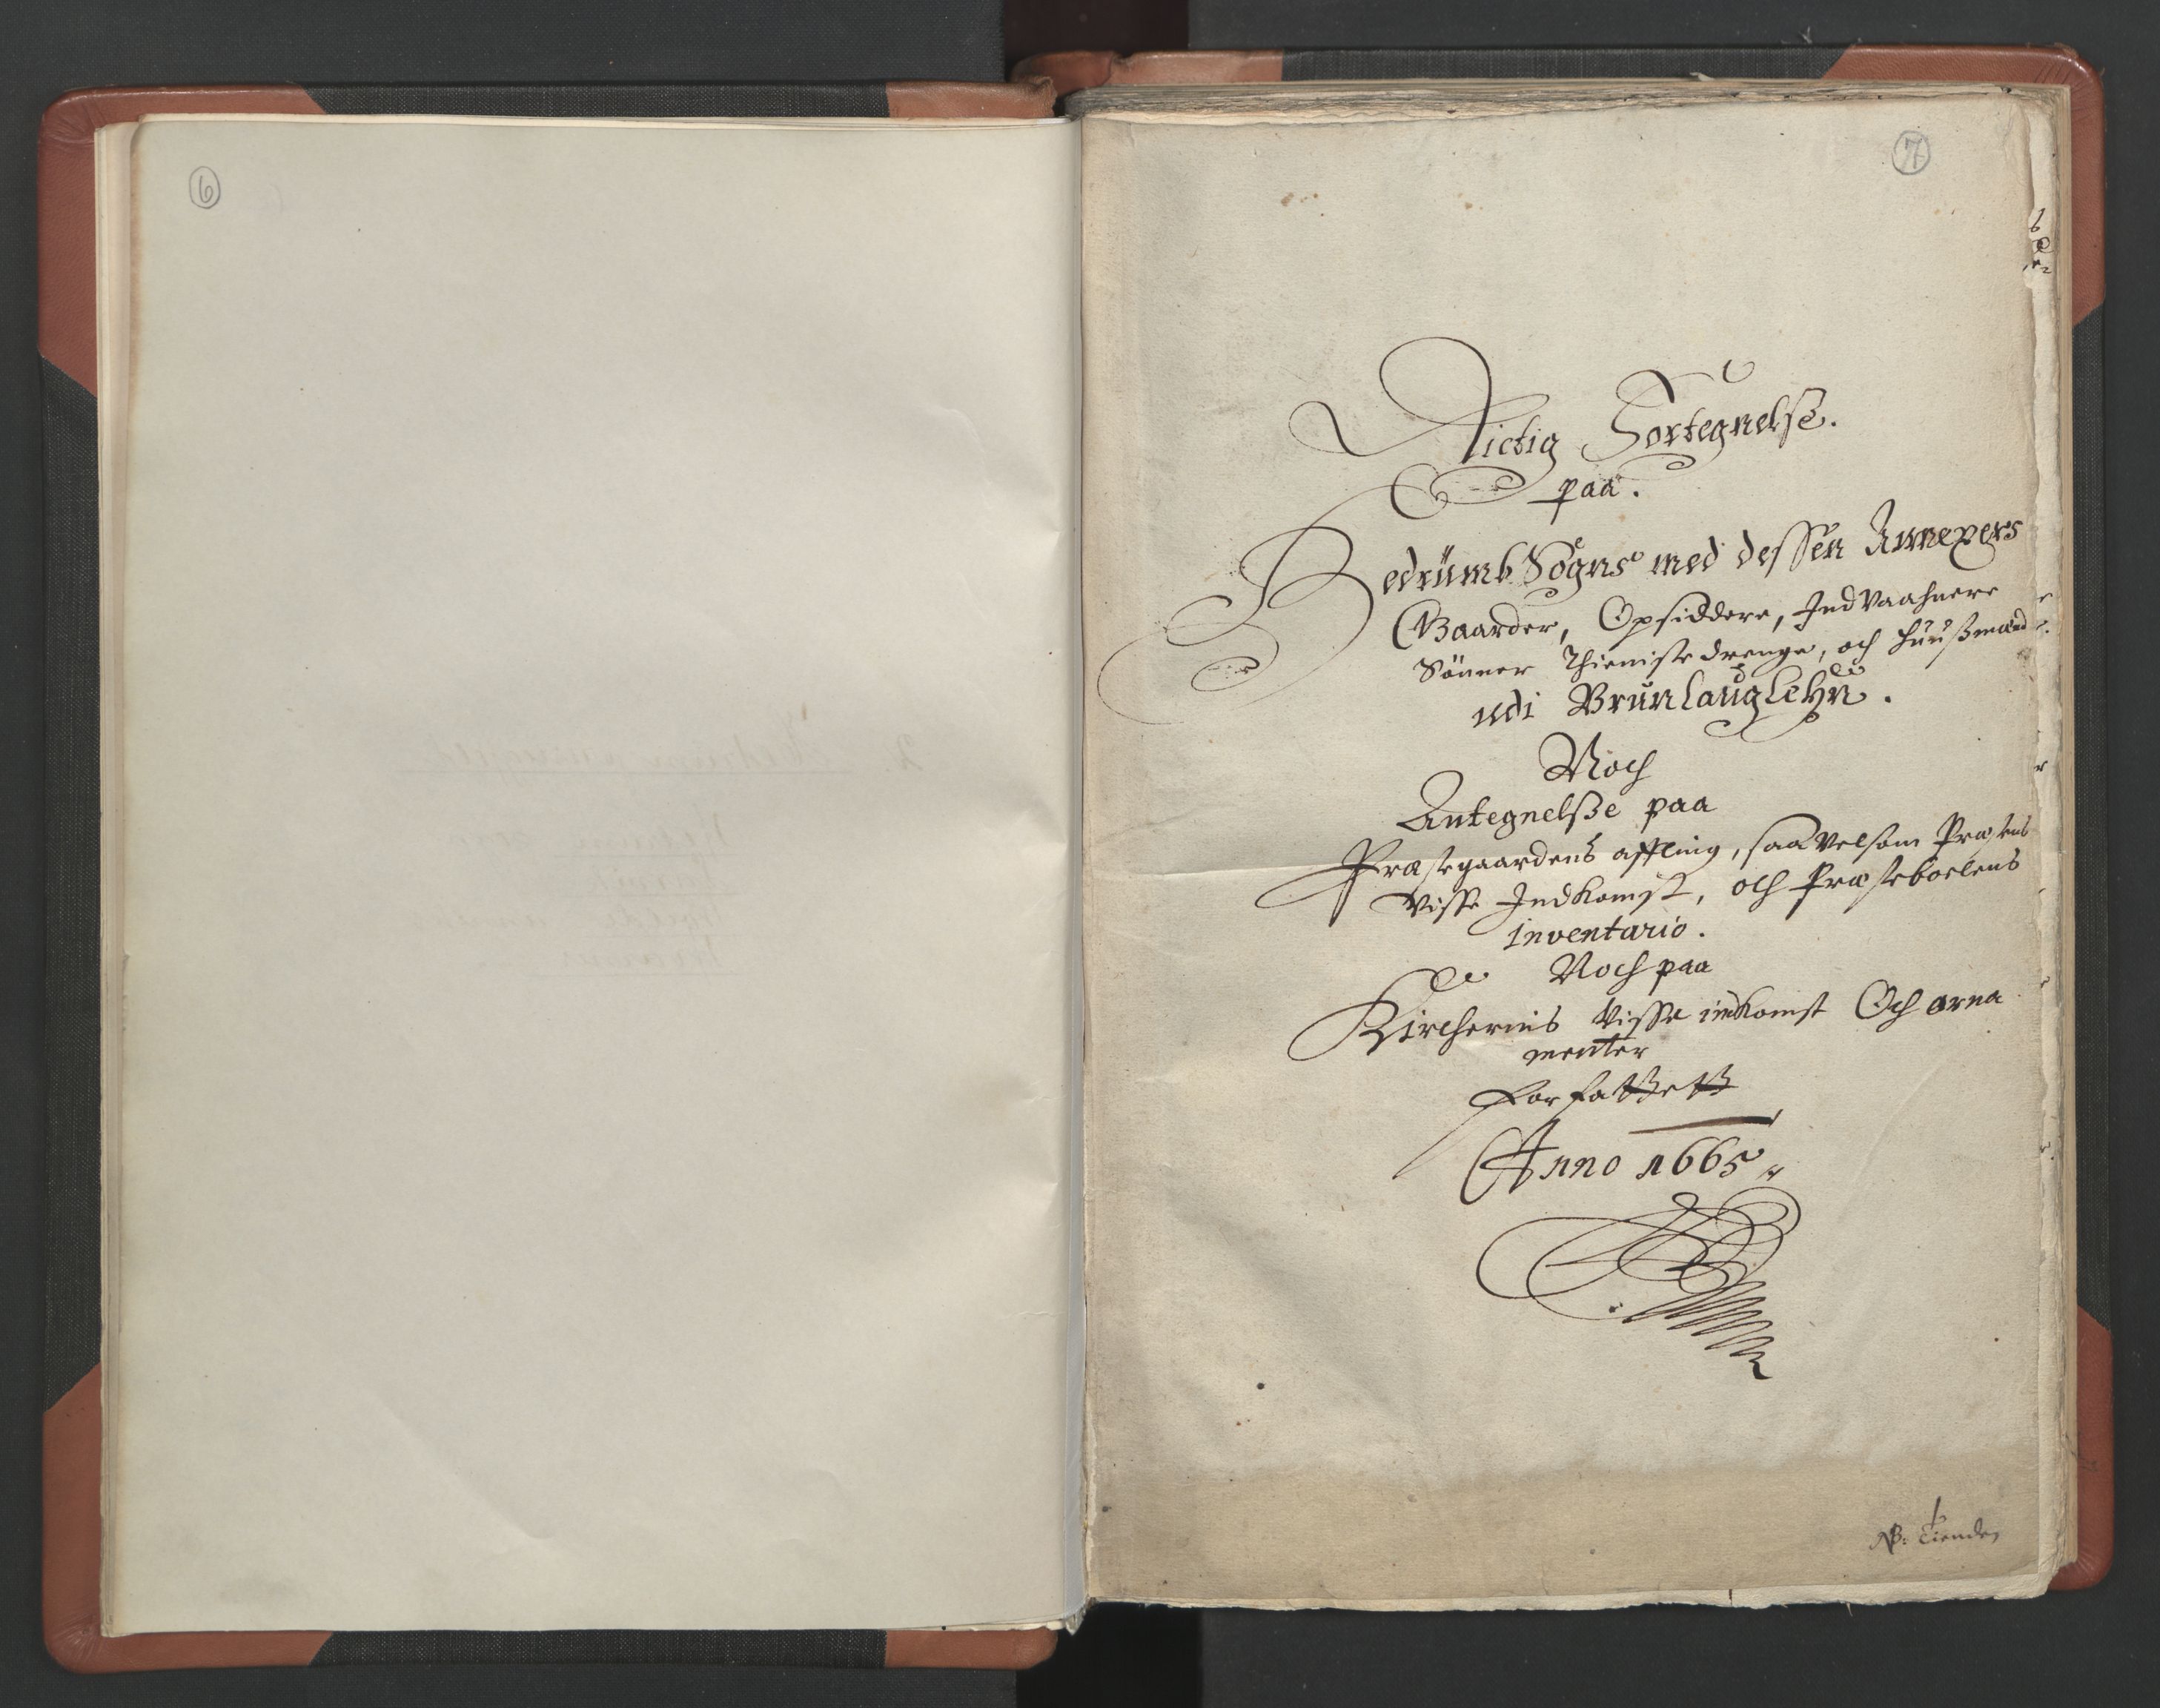 6
7
Rictig Fortegnelse.
paa.
Hedrümb Sogns med dessen Annexers
Gaarder, Opsiddere, Indvaahnere
Sönner Thieniste drenge, och Huußmænd
udi Brunlaugs Lehn.
Noch
Antegnelsse paa
Præstegaardens affling, saavelsom Præstens
visse Indkomst, och Præsteboelens
inventario.
Noch paa
Kirchernis visse indkomst Och orna
menter
Forfattett
Anno 1665
NB: tiende